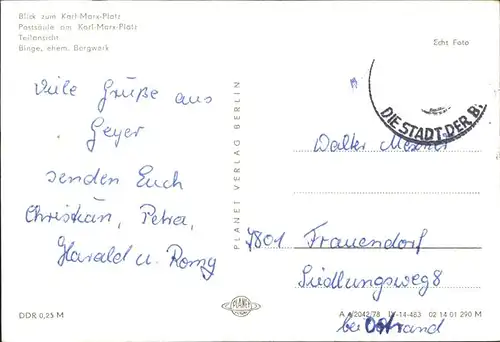 Blick zum Karl-Marx-Platz
Postsäule am Karl-Marx-Platz
Teilansicht
Binge, ehem. Bergwerk
Echt Foto
Viele Grüße aus
Geyer
senden Euch
Christian, Petra,
Harald u. Romy
PLANET VERLAG BERLIN
DIE STADT DER B
Walter
7801 Frauendorf
Siedlungsweg 8
bei Ortrand
DDR 0,25 M
PLANET
A 1/2042/78 IV-14-483 02 14 01 290 M